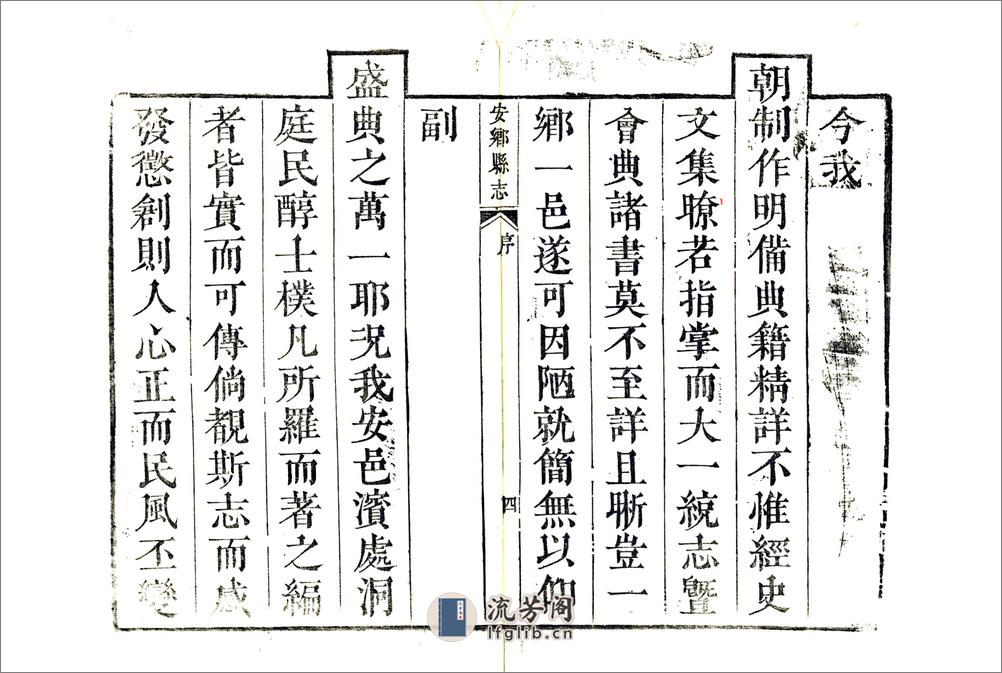 今我
朝制作明備典籍精詳不惟經史
文集瞭若指掌而大一統志暨
會典諸書莫不至詳且晰豈一
鄉一邑遂可因陋就簡無以仰
安鄉縣志
序
四
副
盛典之萬一耶況我安邑濱處洞
庭民醇士樸凡所羅而著之編
者皆實而可傳倘覩斯志而感
發懲創則人心正而民風丕變
流芳阁
lfglib.cn